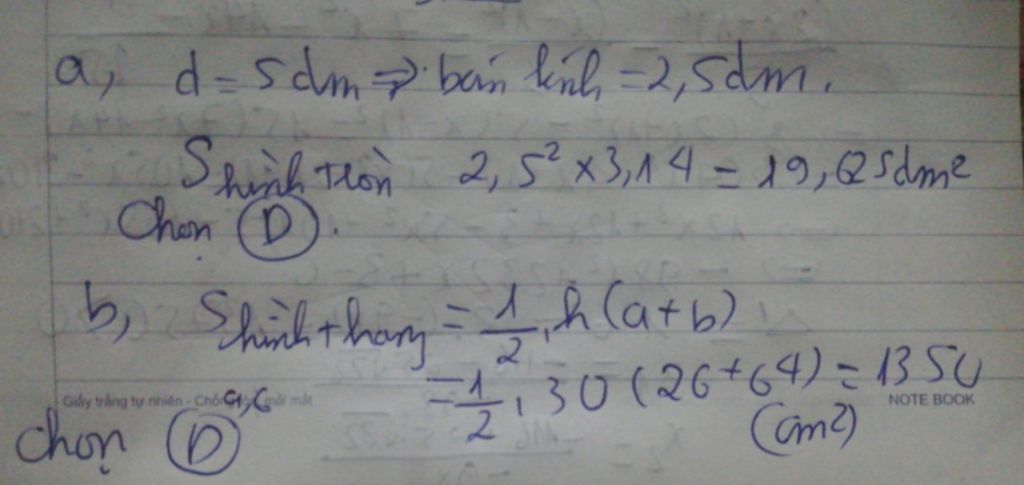 a, d = 5dm => bán kính = 2,5dm.
S hình tròn 2,5² x 3,14 = 19,625dm²
Chọn D.
b, S hình thang = 1/2 . h (a+b)
= 1/2 . 30 (26+64) = 1350
Giấy trắng tự nhiên - Chống mỏi mắt NOTE BOOK
(cm²)
Chọn D